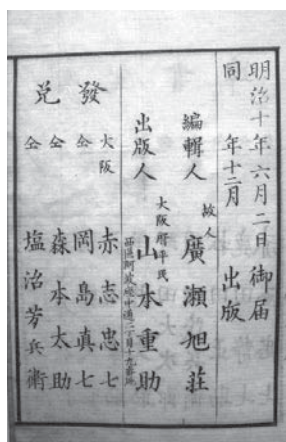 明治十年六月二日御届
同　年十二月　出版
編輯人　故人　廣瀬旭荘
出版人　大阪府平民　山本重助
發兌
大阪　赤志忠七
仝　岡島真七
仝　森本太助
仝　塩治芳兵衛